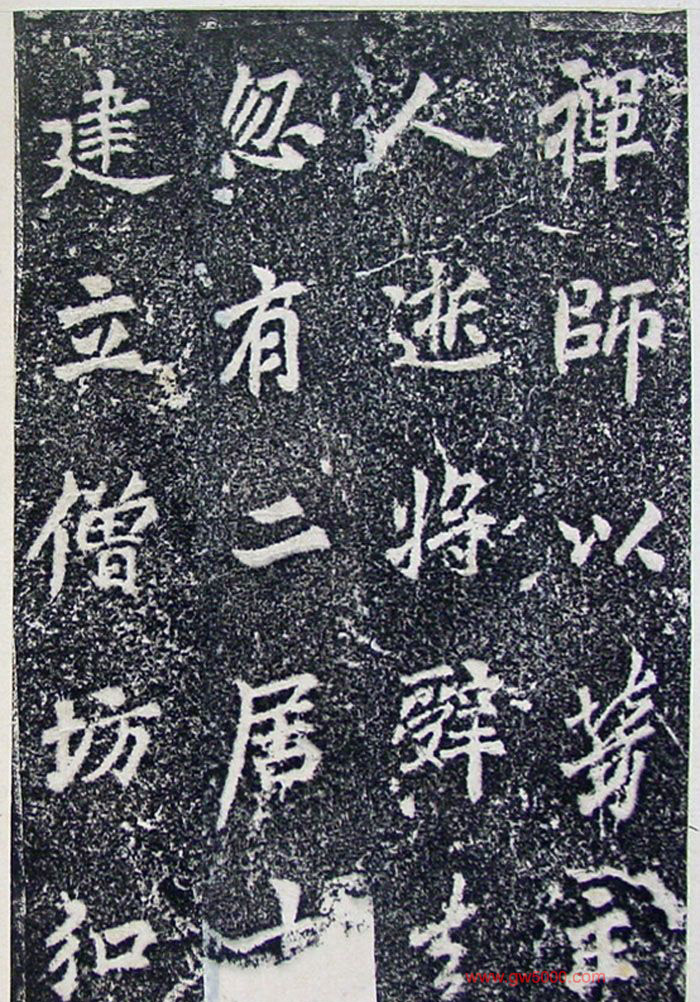 禪師以勞主
人逝將辭去
忽有二居士
建立僧坊弘
www.gw5000.com